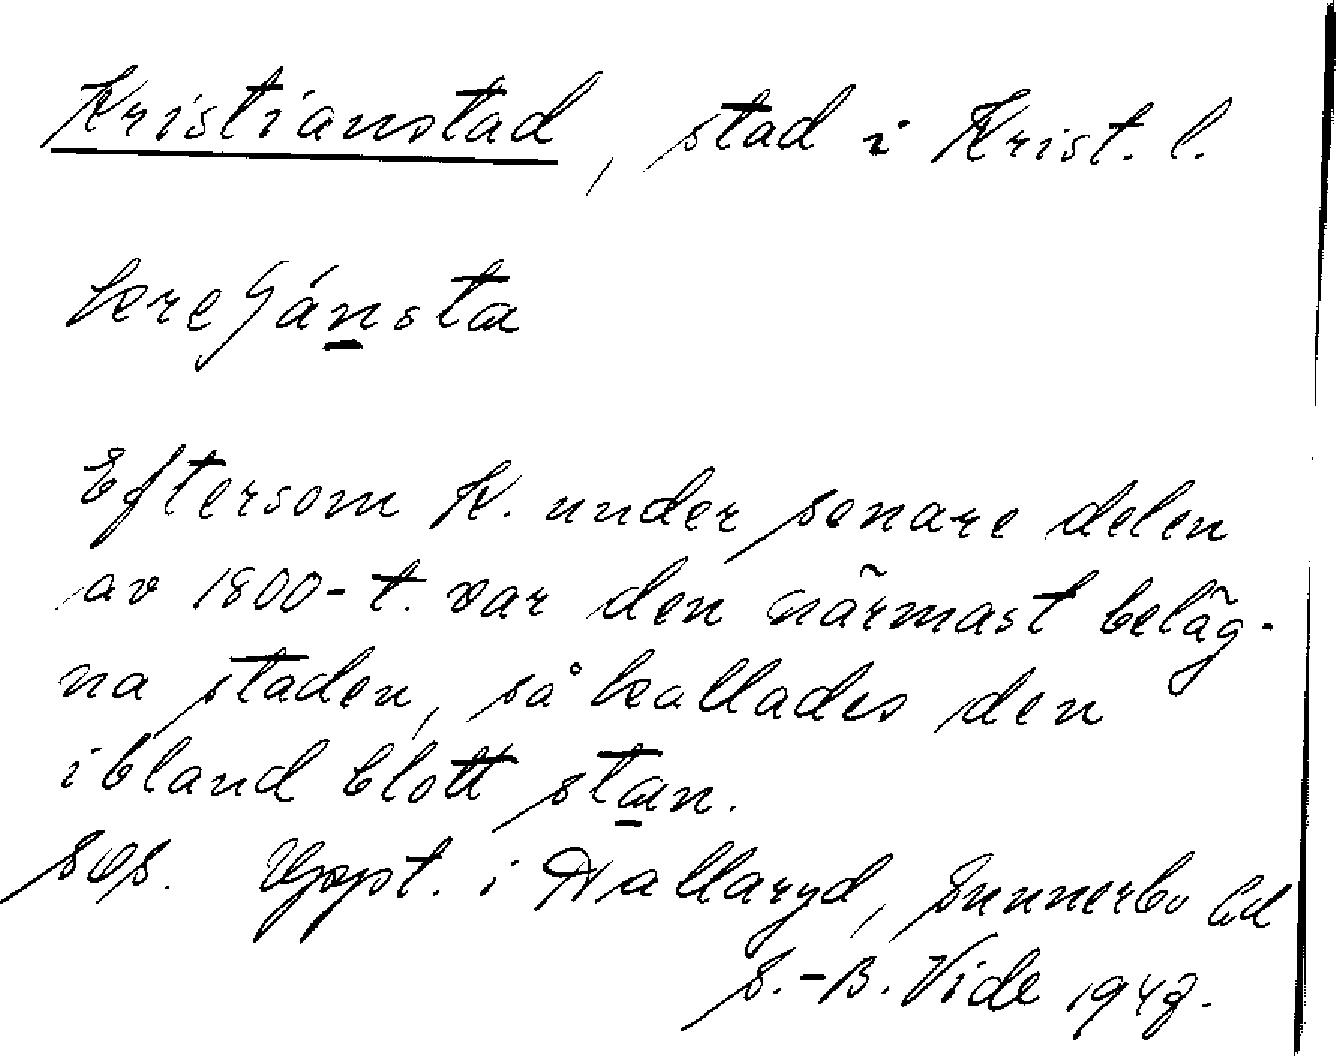 Kristianstad, stad i Krist. l.
Eftersom K. under senare delen
av 1800-t. var den närmast beläg-
na staden, så kallades den
ibland blott stan.
Uppt. i Hallaryd, Sunnerbo hd
S.-B. Vide 1947.